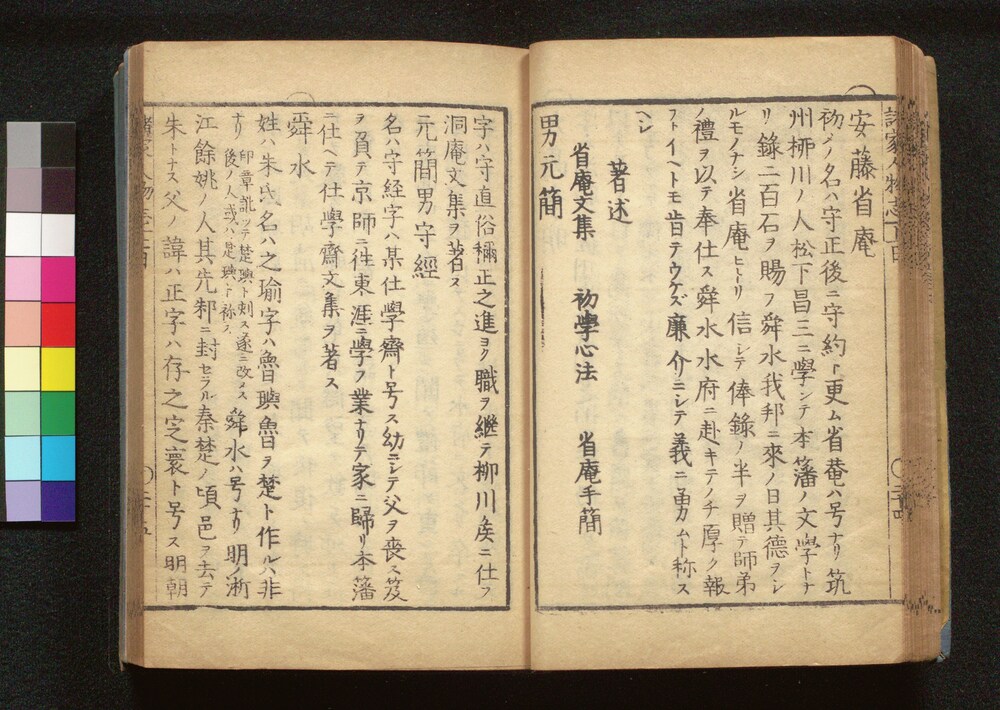 安藤省庵
初ノ名ハ守正後ニ守約ト更ム省菴ハ号ナリ筑
州栁川ノ人松下昌三ニ學ンテ本藩ノ文學トナ
リ録二百石ヲ賜フ舜水我邦ニ來ノ日其德ヲシ
ルモノナシ省庵ヒトリ信シテ俸錄ノ半ヲ贈テ師弟
ノ禮ヲ以テ奉仕ス舜水水府ニ赴キテノチ厚ク報
フトイヘトモ肯テウケズ廉介ニシテ義ニ勇ムト称ス
ヘシ
著述
省庵文集 初學心法 省庵手簡
男元簡
字ハ守直俗稱正之進ヨク職ヲ継テ柳川矦ニ仕フ
洞庵文集ヲ著ス
元簡男守經
名ハ守経字ハ某仕學齋ト号ス幼ニシテ父ヲ喪ス笈
ヲ負テ京師ニ徃東涯ニ學フ業ナリテ家ニ歸リ本藩
ニ仕ヘテ仕學齋文集ヲ著ス
舜水
姓ハ朱氏名ハ之瑜字ハ魯璵魯ヲ楚ト作ルハ非
ナリ 印章訛ツテ楚璵ト刻ス遂ニ改メス 後ノ人或ハ楚璵ト称ス 舜水ハ号ナリ明ノ浙
江餘姚ノ人其先邾ニ封セラル秦楚ノ頃邑ヲ去テ
朱トナス父ノ諱ハ正字ハ存之定寰ト号ス明朝